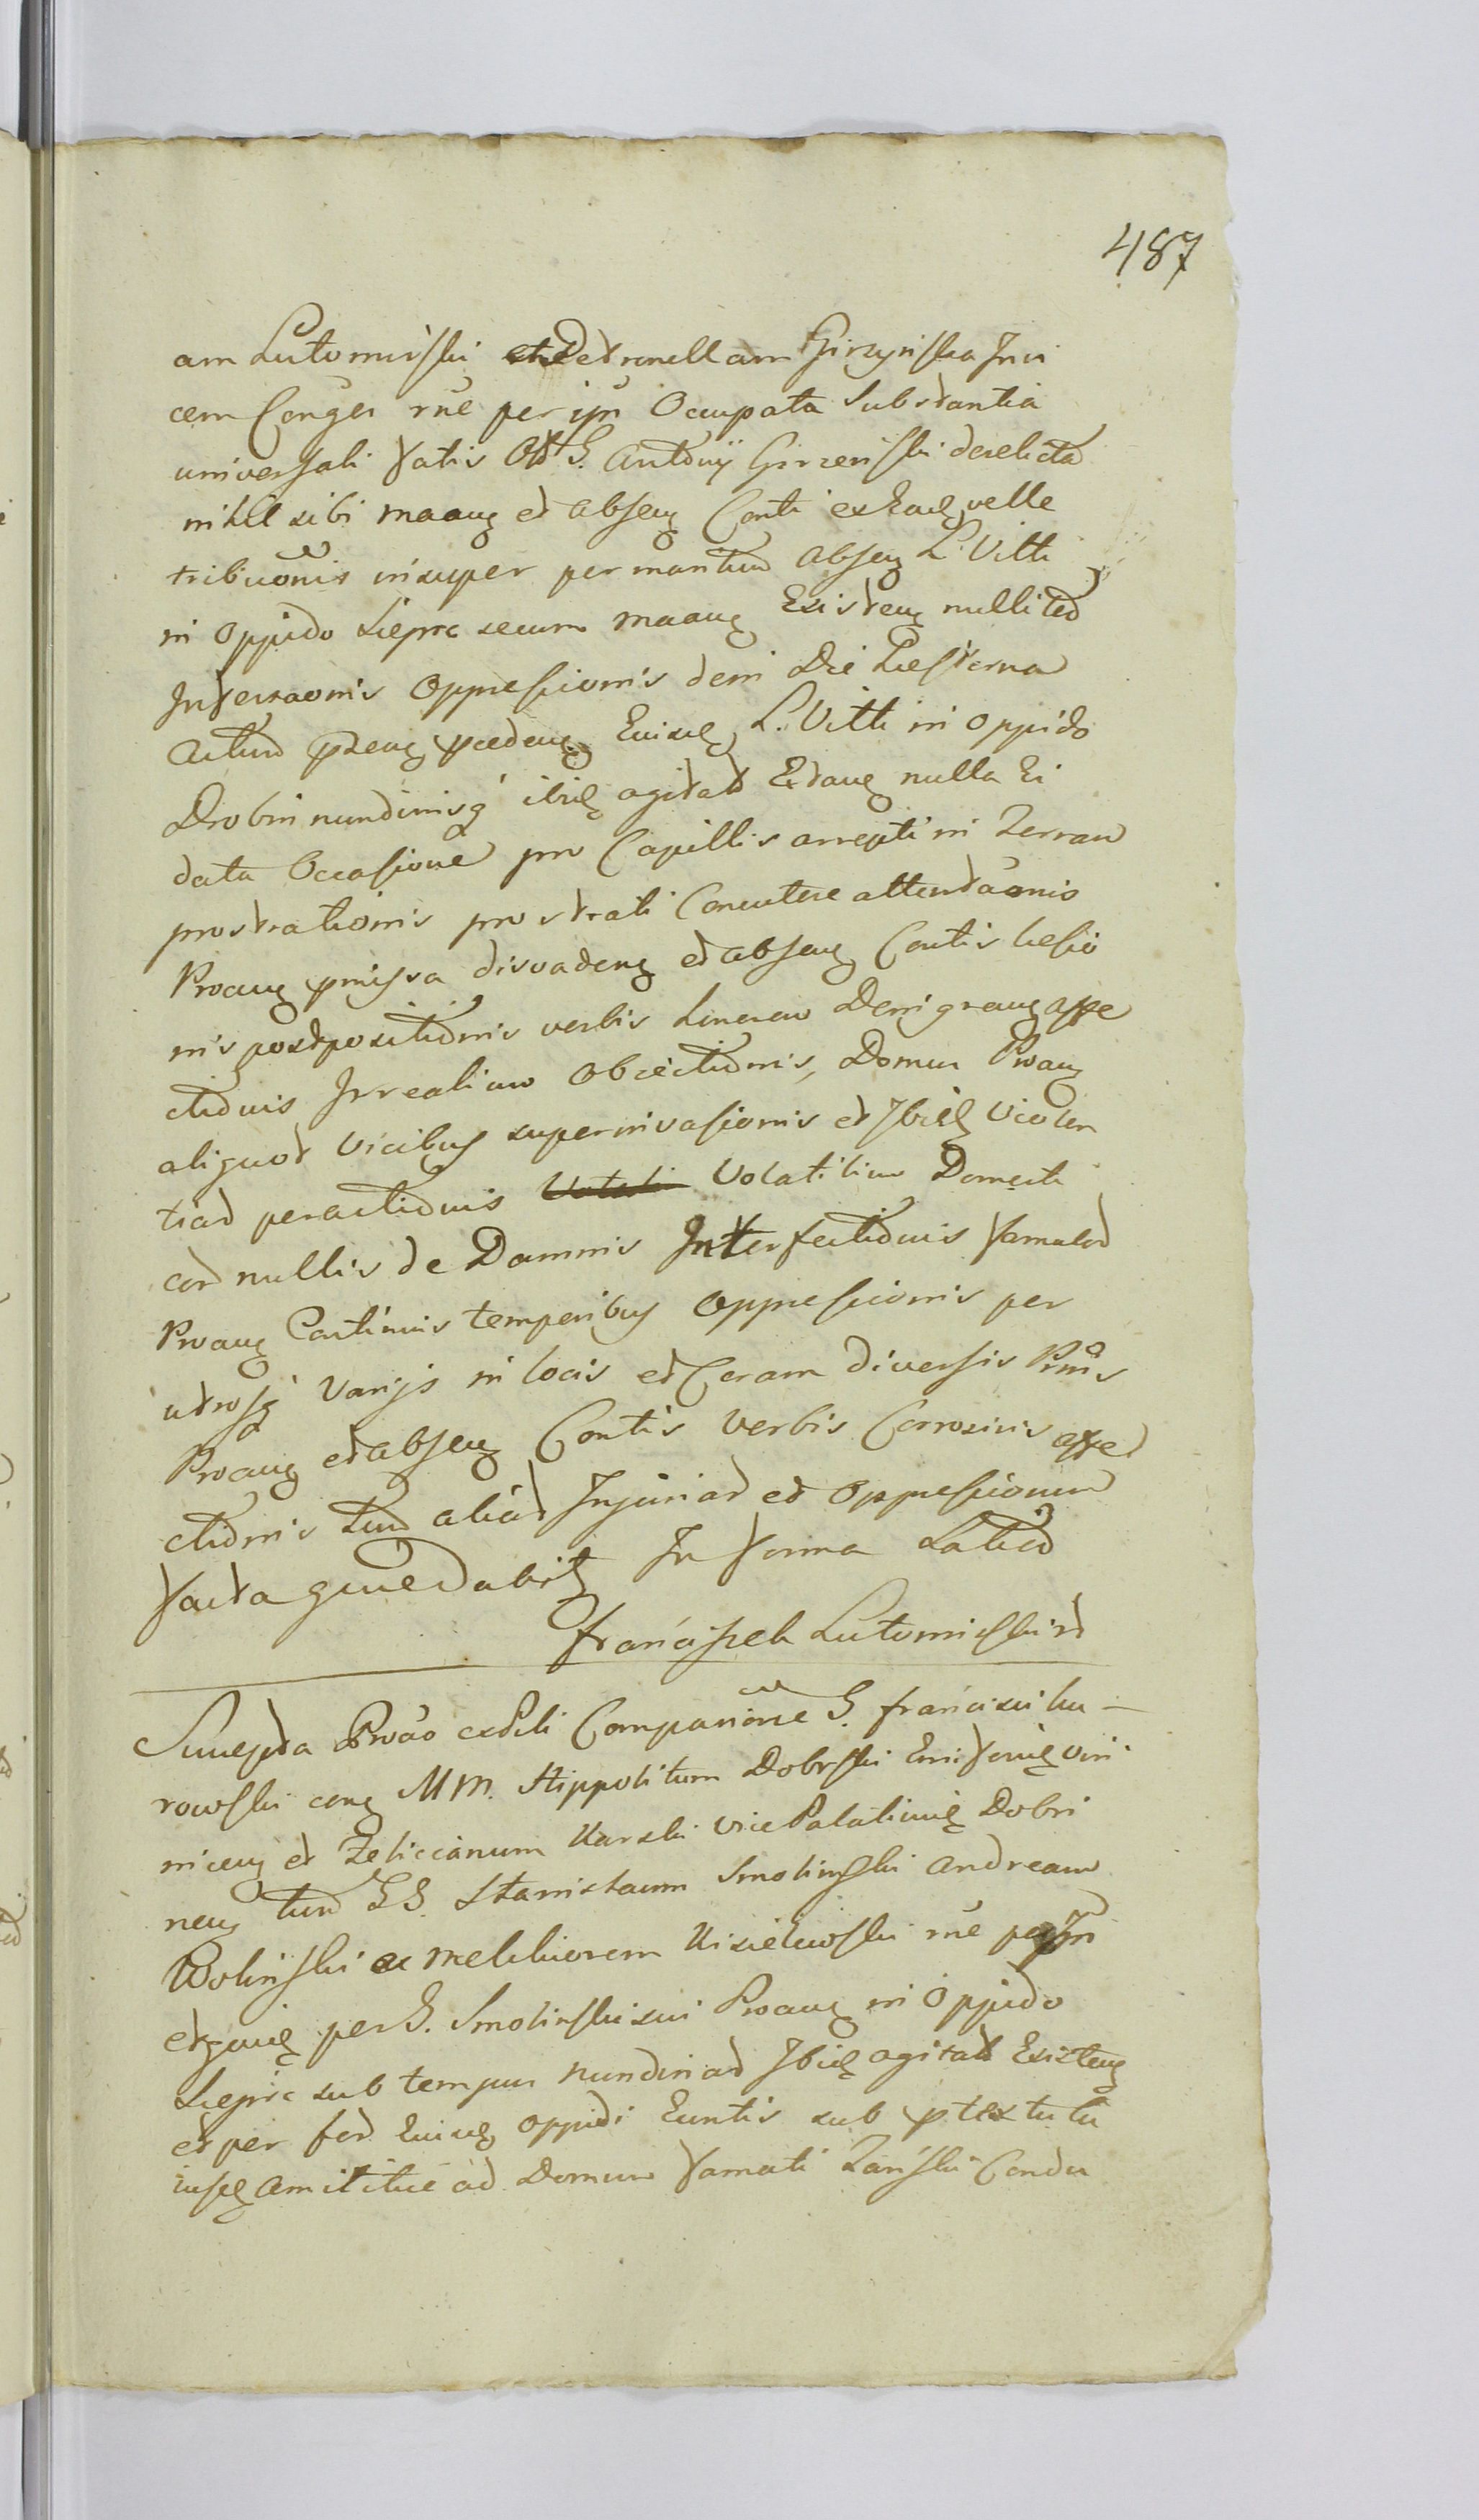 487
am Lutomirski et Petronellam Girzynska Invi
cem Conges rne per ipn Occupata Substantia
universali fatis Old G. Antonij Girzenski derelicta
nihil sibi maanę et absenę Conti exhacę velle
tribuonis insuper per maritum absenę L. Vitti
in Oppido Sieprc secum maanę Existenę nullited
Interraonis Oppressionis dein Die Hesterna
Actum pnenę pcedenę Euiusę L. Vitti in oppido
Drobin nundinisq ibiḍę agitatt Extanę nulla Ei
data Occasione pro Capillis arrepti in Terram
prostrationis prostrati Concutere attentaonis
Proanę pmissa disvadenę et absenę Contis hesio
nis postpositionis verbis honorem Denigranę affe
ctionis Irrealium Obiectionis, Domus Proanę
aliquot Vicibus superinvasionis et Ibiḍę Violen
tiad peractionis Volatilium Domesti
cord nullis de Damnis Interfectionis famulod
Proanę Continuis temporibus Oppressionis per
utrosq Varijs in locis et Coram Diversis Prnis
Proanę et absenę Contis Verbis Corrosivis affe
ctionis tum aliad Injuriad et Oppressionum
facta quedabitę In forma Latiod
Franciszek Lutomirski
Suscepta Proao ex Peli Comparione G. Francisci Hu-
rowski conę MM. Hippolitum Dobrski Ensiferuę Viri
nicenę et Feliccianum Karski Vice Palatinuę Dobri
nenę tum GG. Stanislaum Smolinski Andream
Wolinski ac Melchiorem Kisielewski rne per Ipn
et quiuę per G. Smolinski sui Proanę in Oppido
Sieprc sub tempus nundinad Ibiḍę agitatt Existenę
et per for Euiusę Oppidi Euntis sub ptextu tu
iusę Amititie ad Domum famati Zanski Condu